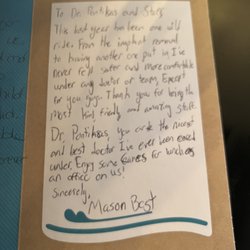 To Dr. Pontikas and Staff,
This last year has been one wild
ride. From the implant removal
to having another one put in I've
never felt safer and more comfortable
under any doctor or team, Except
for you guys. Thank you for being the
most kind, friendly and amazing staff.
Dr. Pontikas, you are the nicest
and best doctor I've ever been cared
under. Enjoy some for lunch as
an office on us!
Sincerely,
Mason Best